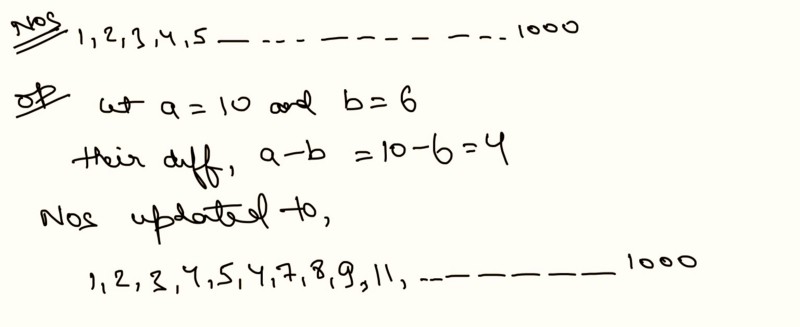 Nos 1, 2, 3, 4, 5 — - - - — — — — — - - 1000
OP let a = 10 and b = 6
their diff, a-b = 10-6 = 4
Nos updated to,
1, 2, 3, 4, 5, 4, 7, 8, 9, 11, - - — — — — — 1000